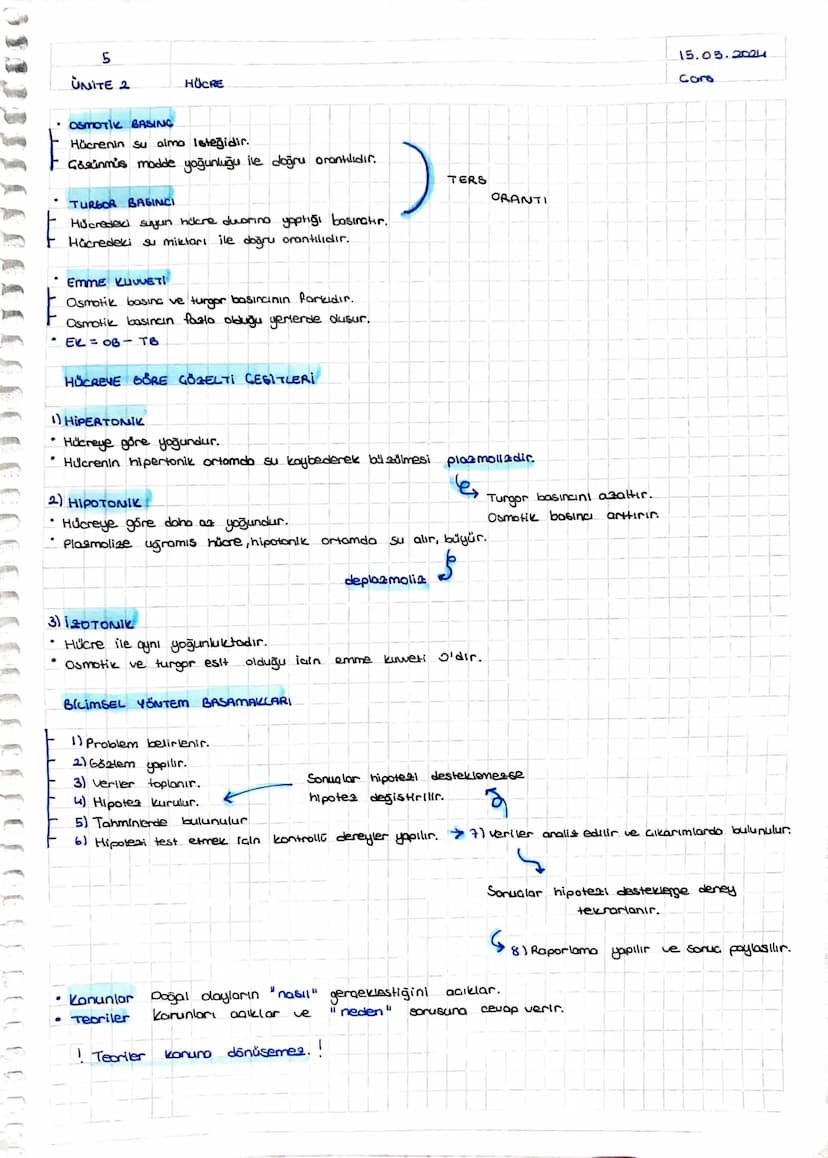 5
15.03.2024
ÜNİTE 2 HÜCRE
Cars
• OSMOTİK BASINÇ
Hücrenin su alma isteğidir.
Çözünmüş madde yoğunluğu ile doğru orantılıdır.
TERS
ORANTI
• TURGOR BASINCI
Hücredeki suyun hücre duvarına yaptığı basınçtır.
Hücredeki su miktarı ile doğru orantılıdır.
• EMME KUVVETİ
Osmotik basınç ve turgor basıncının farkıdır.
Osmotik basıncın fazla olduğu yerlerde oluşur.
• EK = OB - TB
HÜCREYE GÖRE ÇÖZELTİ ÇEŞİTLERİ
1) HİPERTONİK
• Hücreye göre yoğundur.
• Hücrenin hipertonik ortamda su kaybederek büzülmesi plazmolizdir.
Turgor basıncını azaltır.
Osmotik basıncı arttırır.
2) HİPOTONİK
• Hücreye göre daha az yoğundur.
• Plazmolize uğramış hücre, hipotonik ortamda su alır, büyür.
deplazmoliz
3) İZOTONİK
• Hücre ile aynı yoğunluktadır.
• Osmotik ve turgor eşit olduğu için emme kuvveti 0'dır.
BİLİMSEL YÖNTEM BASAMAKLARI
1) Problem belirlenir.
2) Gözlem yapılır.
3) Veriler toplanır.
4) Hipotez kurulur.
5) Tahminlerde bulunulur
6) Hipotezi test etmek için kontrollü deneyler yapılır. → 7) Veriler analiz edilir ve çıkarımlarda bulunulur.
Sonuçlar hipotezi desteklemezse
hipotez değiştirilir.
Sonuçlar hipotezi desteklerse deney
tekrarlanır.
8) Raporlama yapılır ve sonuç paylaşılır.
• Kanunlar Doğal olayların "nasıl" gerçekleştiğini açıklar.
• Teoriler Kanunları açıklar ve "neden" sorusuna cevap verir.
! Teoriler kanuna dönüşemez. !